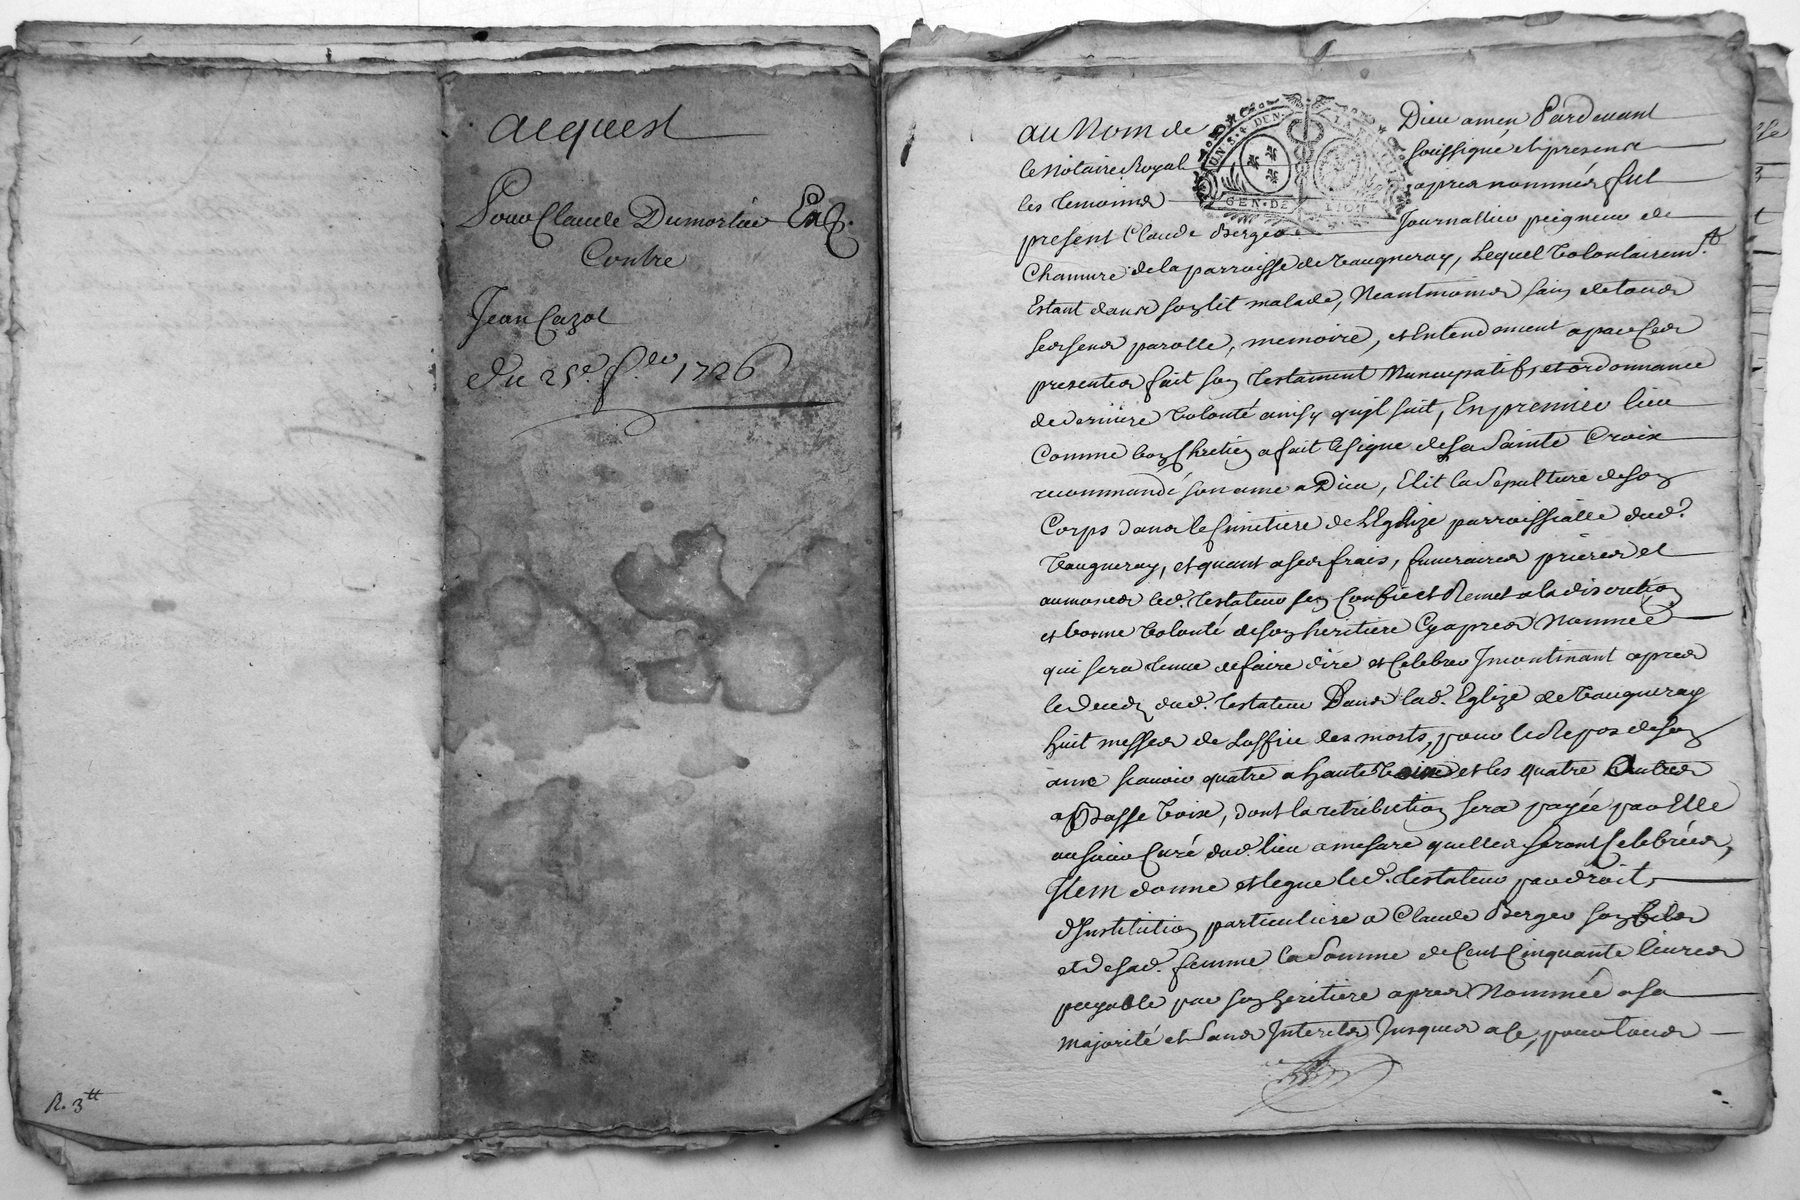 acquest
Pour Claude Dumortié
Contre
Jean Cazot
du 25e. 1726
R. 3tt
UN. S. DEN.
GEN. DE LION
au Nom de Dieu amen Pardevant
le Notaire Royal soussigné et presens
les temoins apres nommés fut
present Claude Berger Journallier peigneur de
Chamure de la parroisse de Vaugneray, Lequel Volontairemt.
Estant dans son lit malade, Neantmoins sain de tous
ses sens parolle, memoire, et Entendement a par ses
presentes fait son testament Nuncupatif, et ordonnance
de derniere Volonté ainsy qu'jl suit, En premier lieu
Comme bon Chretien a fait le signe de la Sainte Croix
recommandé son ame a Dieu, Elit la Sepulture de son
Corps dans le Cimetiere de L'Eglize parroissialle dud.
Vaugneray, et quant a ses frais, funeraires prieres et
aumones led. testateur s'en Confie et Remet a la discretion
et bonne Volonté de son heritiere Cy apres Nommée
qui sera tenue de faire dire et Celebrer Incontinant apres
le deceds dud. testateur Dans lad. Eglize de Vaugneray
huit messes de L'office des morts, pour le Repos de son
ame scavoir quatre a haute Voix et les quatre Autres
a Basse Voix, dont la retribution sera payée par Elle
au sieur Curé dud. lieu a mesure quelles seront Celebrées,
Item donne et legue led. testateur par droit
d'Institution particuliere a Claude Berger son fils
et de sad. femme la Somme de Cent Cinquante livres
payable par son heritiere apres Nommée a sa
majorité et Sans Interets Jusques a ce, pour tous